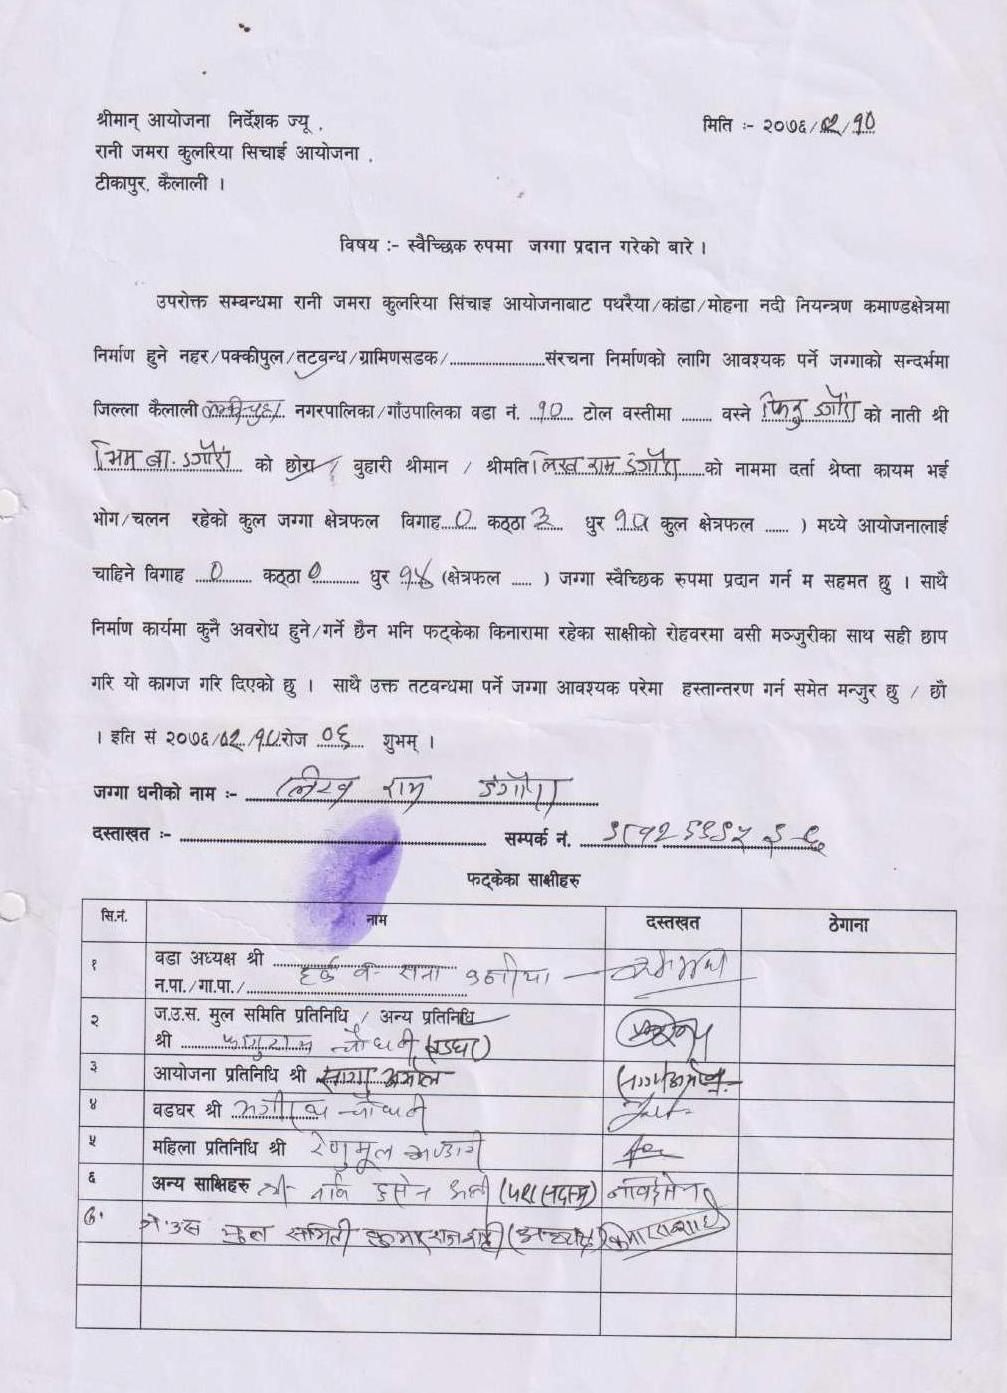 श्रीमान् आयोजना निर्देशक ज्यू ,
मिति :- २०७६/०२/१०
रानी जमरा कुलरिया सिचाई आयोजना ,
टीकापुर, कैलाली ।
विषय :- स्वैच्छिक रुपमा जग्गा प्रदान गरेको बारे ।
उपरोक्त सम्बन्धमा रानी जमरा कुलरिया सिंचाइ आयोजनाबाट पथरैया/कांडा/मोहना नदी नियन्त्रण कमाण्डक्षेत्रमा
निर्माण हुने नहर/पक्कीपुल/तटबन्ध/ग्रामिणसडक/........................संरचना निर्माणको लागि आवश्यक पर्ने जग्गाको सन्दर्भमा
जिल्ला कैलाली लम्कीचुहा नगरपालिका/गाँउपालिका वडा नं. १० टोल वस्तीमा ........ वस्ने डगौरा को नाती श्री
भिम बा. डगौरा को छोरा / बुहारी श्रीमान / श्रीमति लिख राम डंगौरा को नाममा दर्ता श्रेष्ता कायम भई
भोग/चलन रहेको कुल जग्गा क्षेत्रफल विगाह 0 कठ्ठा ३ धुर १० कुल क्षेत्रफल ...... ) मध्ये आयोजनालाई
चाहिने विगाह 0 कठ्ठा 0 धुर १४ (क्षेत्रफल ..... ) जग्गा स्वैच्छिक रुपमा प्रदान गर्न म सहमत छु । साथै
निर्माण कार्यमा कुनै अवरोध हुने/गर्ने छैन भनि फट्केका किनारामा रहेका साक्षीको रोहवरमा वसी मञ्जुरीका साथ सही छाप
गरि यो कागज गरि दिएको छु । साथै उक्त तटवन्धमा पर्ने जग्गा आवश्यक परेमा हस्तान्तरण गर्न समेत मन्जुर छु / छौ
। इति सं २०७६/०२/१० रोज ०६ शुभम् ।
जग्गा धनीको नाम :- लिख राम डंगौरा
दस्ताखत :- सम्पर्क नं.
फट्केका साक्षीहरु
सि.नं. नाम दस्तखत ठेगाना
१ वडा अध्यक्ष श्री
न.पा./गा.पा./
२ ज.उ.स. मुल समिति प्रतिनिधि / अन्य प्रतिनिधि
श्री फागुराम चौधरी (बडघर)
३ आयोजना प्रतिनिधि श्री
४ वडघर श्री चौधरी
५ महिला प्रतिनिधि श्री
६ अन्य साक्षिहरु श्री हुसेन अली (वडा सदस्य)
७. ज.उ.स मुल समिती कुमार राज शाही (अध्यक्ष)